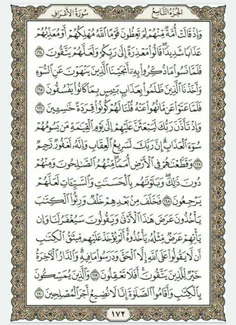 الجزء التاسع
سورة الأعراف
وَإِذْ قَالَتْ أُمَّةٌ مِّنْهُمْ لِمَ تَعِظُونَ قَوْمًا اللَّهُ مُهْلِكُهُمْ أَوْ مُعَذِّبُهُمْ
عَذَابًا شَدِيدًا قَالُوا مَعْذِرَةً إِلَىٰ رَبِّكُمْ وَلَعَلَّهُمْ يَتَّقُونَ ١٦٤
فَلَمَّا نَسُوا مَا ذُكِّرُوا بِهِ أَنجَيْنَا الَّذِينَ يَنْهَوْنَ عَنِ السُّوءِ
وَأَخَذْنَا الَّذِينَ ظَلَمُوا بِعَذَابٍ بَئِيسٍ بِمَا كَانُوا يَفْسُقُونَ ١٦٥
فَلَمَّا عَتَوْا عَن مَّا نُهُوا عَنْهُ قُلْنَا لَهُمْ كُونُوا قِرَدَةً خَاسِئِينَ ١٦٦
وَإِذْ تَأَذَّنَ رَبُّكَ لَيَبْعَثَنَّ عَلَيْهِمْ إِلَىٰ يَوْمِ الْقِيَامَةِ مَن يَسُومُهُمْ
سُوءَ الْعَذَابِ إِنَّ رَبَّكَ لَسَرِيعُ الْعِقَابِ وَإِنَّهُ لَغَفُورٌ رَّحِيمٌ
١٦٧ وَقَطَّعْنَاهُمْ فِي الْأَرْضِ أُمَمًا مِّنْهُمُ الصَّالِحُونَ وَمِنْهُمْ
دُونَ ذَٰلِكَ وَبَلَوْنَاهُم بِالْحَسَنَاتِ وَالسَّيِّئَاتِ لَعَلَّهُمْ
يَرْجِعُونَ ١٦٨ فَخَلَفَ مِن بَعْدِهِمْ خَلْفٌ وَرِثُوا الْكِتَابَ
يَأْخُذُونَ عَرَضَ هَٰذَا الْأَدْنَىٰ وَيَقُولُونَ سَيُغْفَرُ لَنَا وَإِن
يَأْتِهِمْ عَرَضٌ مِّثْلُهُ يَأْخُذُوهُ أَلَمْ يُؤْخَذْ عَلَيْهِم مِّيثَاقُ الْكِتَابِ
أَن لَّا يَقُولُوا عَلَى اللَّهِ إِلَّا الْحَقَّ وَدَرَسُوا مَا فِيهِ وَالدَّارُ الْآخِرَةُ
خَيْرٌ لِّلَّذِينَ يَتَّقُونَ أَفَلَا تَعْقِلُونَ ١٦٩ وَالَّذِينَ يُمَسِّكُونَ
بِالْكِتَابِ وَأَقَامُوا الصَّلَاةَ إِنَّا لَا نُضِيعُ أَجْرَ الْمُصْلِحِينَ ١٧٠
١٧٢